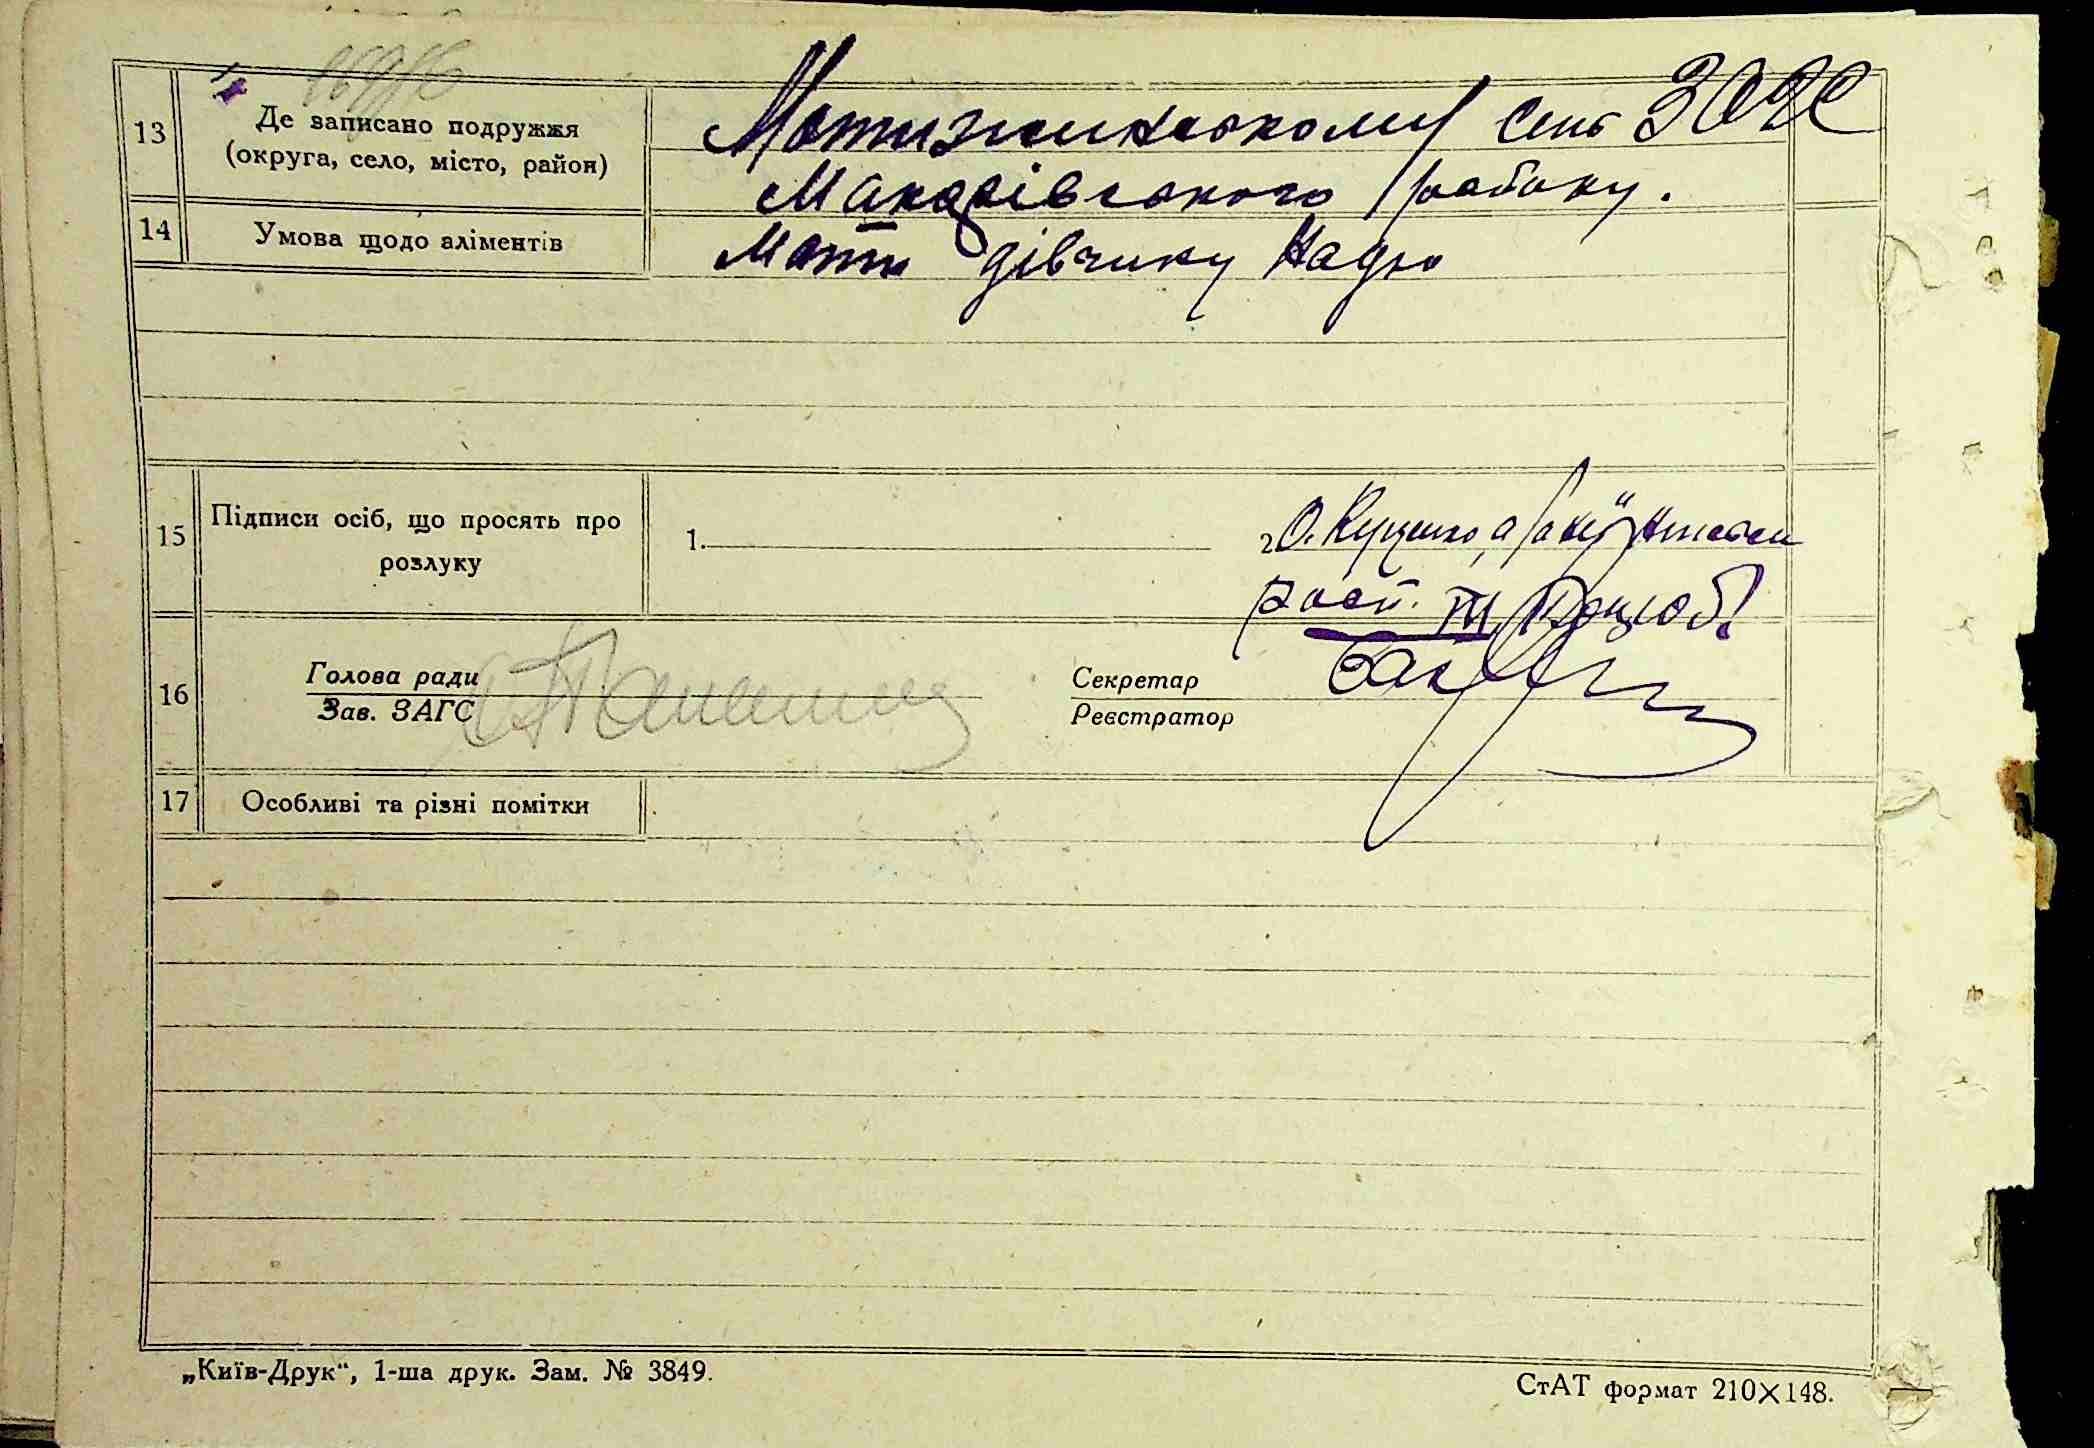 13
Де записано подружжя
(округа, село, місто, район)
Мотижинському сель ЗАГС
Макарівського району.
14
Умова щодо аліментів
Мати дівчинку Надю
15
Підписи осіб, що просять про
розлуку
1.
2. О. Куценко, а
16
Голова ради
Зав. ЗАГС
Секретар
Реєстратор
17
Особливі та різні помітки
„Київ-Друк“, 1-ша друк. Зам. № 3849.
СтАТ формат 210×148.